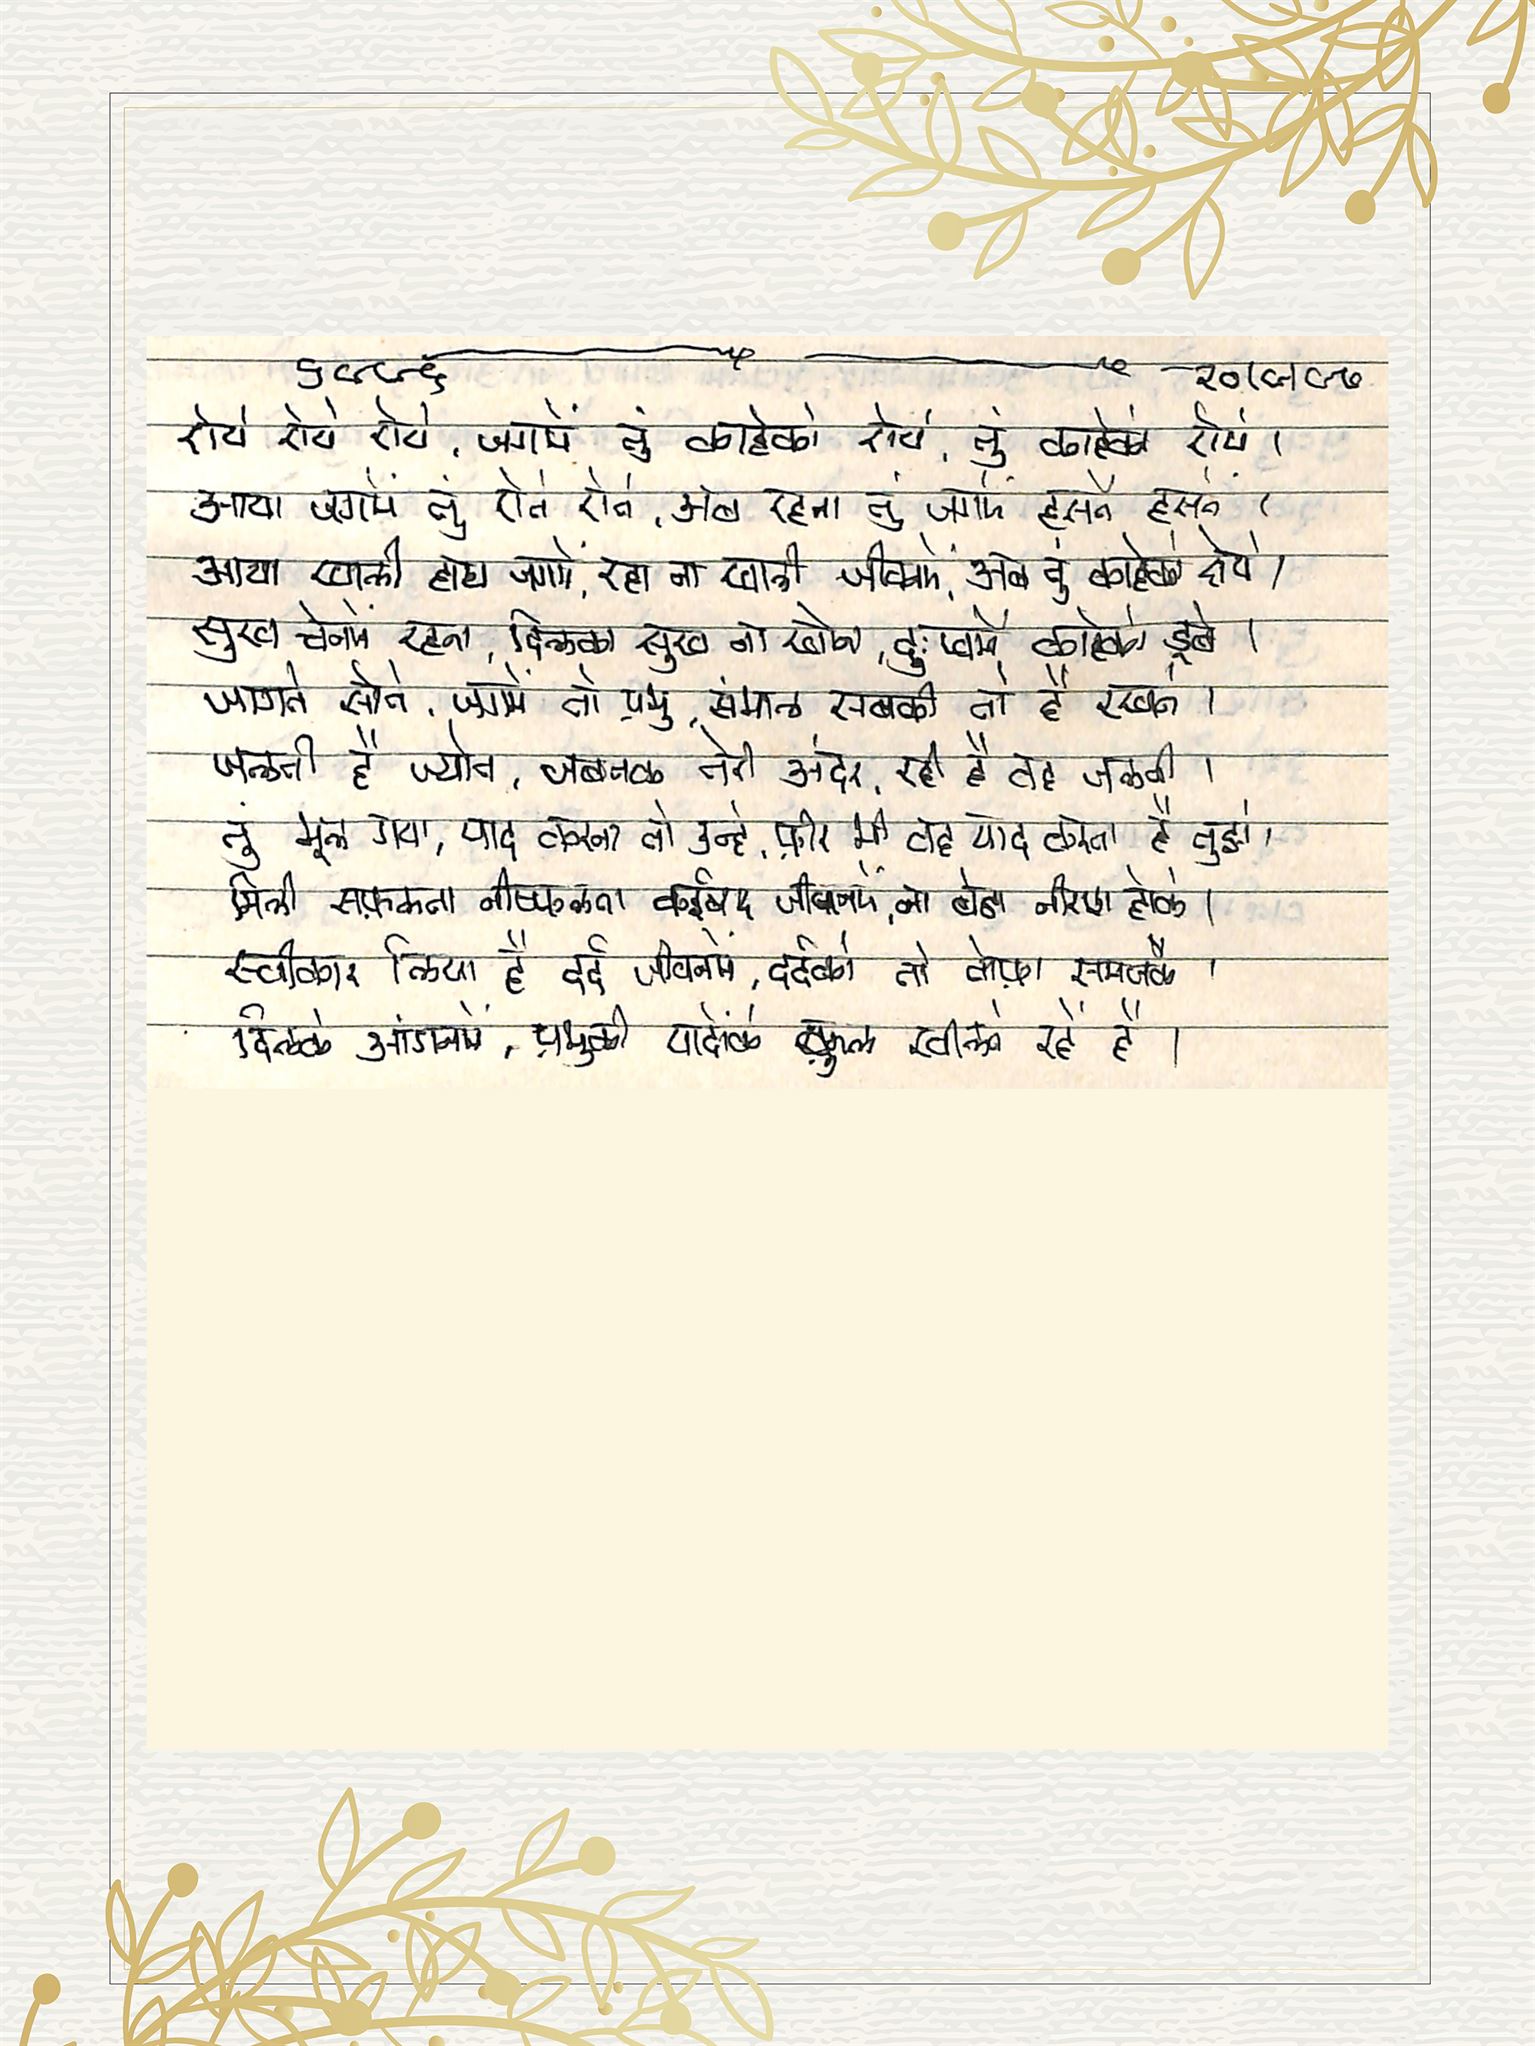 ५८८६ २०।८।८७
रोये रोये रोये, जगमें तुं काहेको रोये, तुं काहेको रोये ।
आया जगमें तुं रोते रोते, अब रहना तुं जगमें हसते हसते ।
आया खाली हाथ जगमें, रहा ना खाली जीवनमें, अब तुं काहेको रोये ।
सुख चेनमें रहना, दिलका सुख ना खोना, दुःखमें काहेको डूबे ।
जागते सोते, जगमें तो प्रभु, संभाल सबकी तो है रखते ।
जलती है ज्योत, जबतक तेरी अंदर, रही है वह जलती ।
तुं भूल गया, याद करना तो उन्हे, फ़ीर भी वह याद करता है तुझे ।
मिली सफ़लता नीष्फलता कईबार जीवनमें, ना बेठा नीराश होके ।
स्वीकार लिया है दर्द जीवनमें, दर्दको तो तोफ़ा समजके ।
दिलके आंगनमें, प्रभुकी यादोंके फ़ुल खीलते रहें है ।